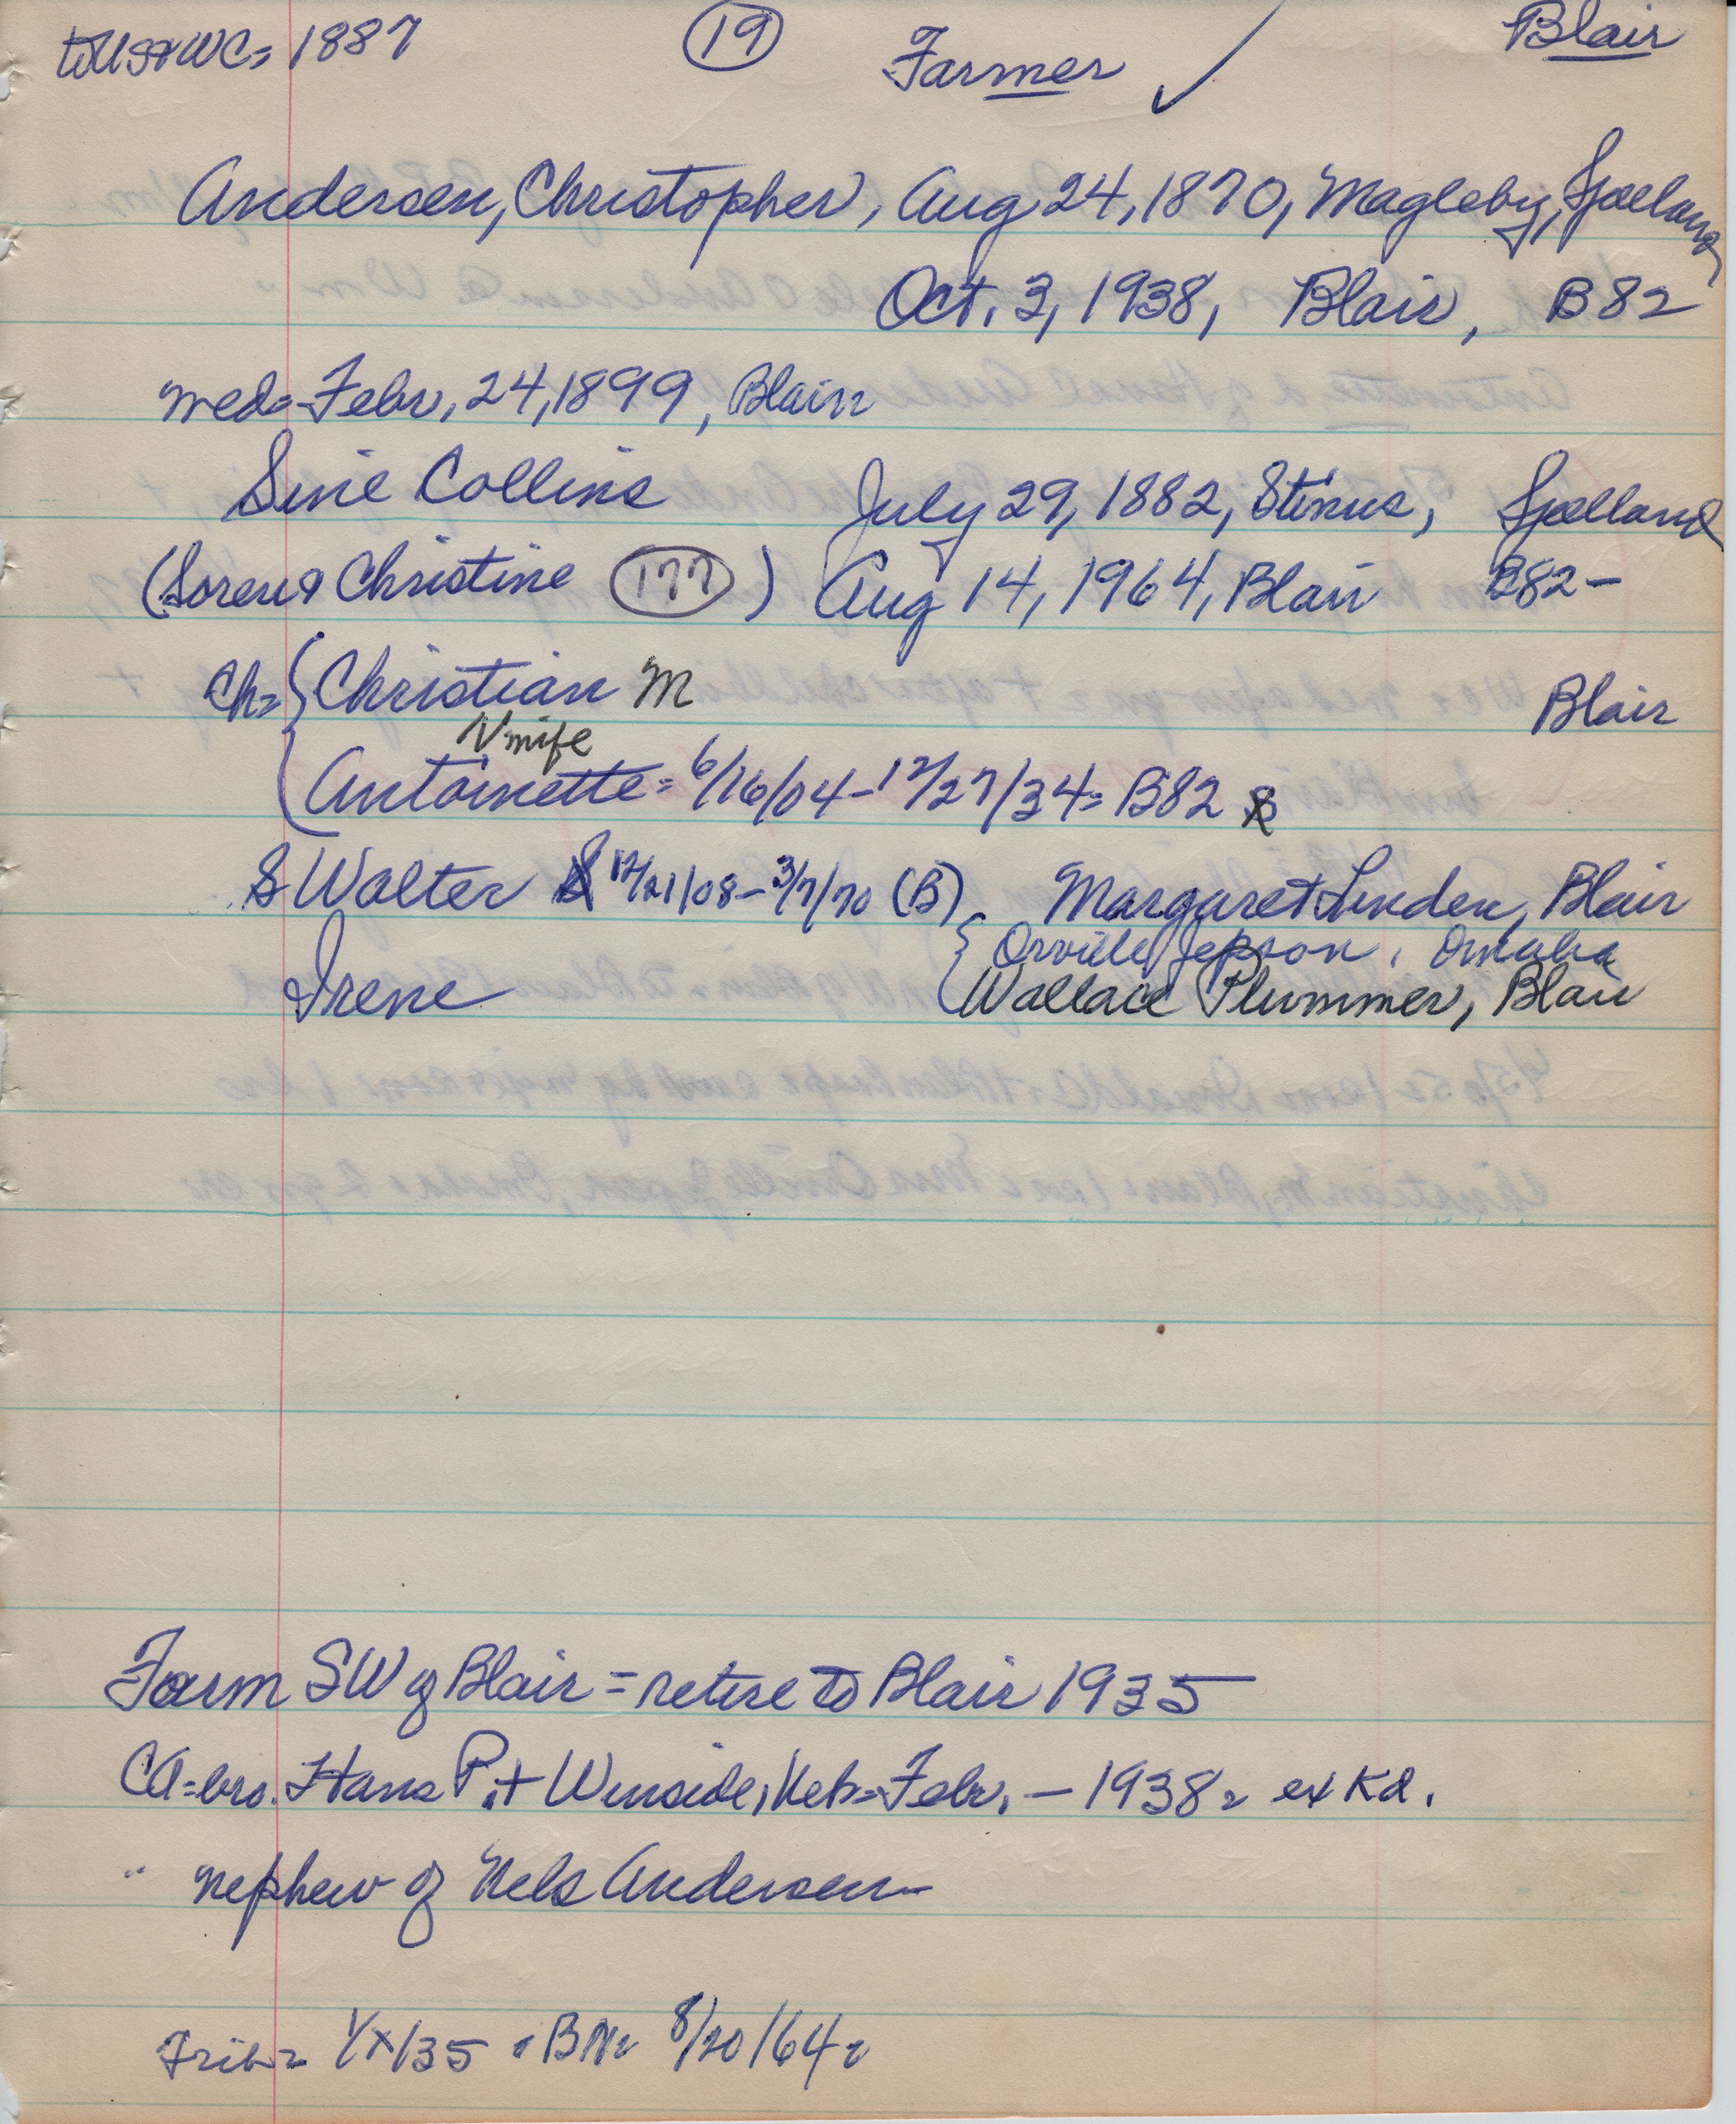 to US & WC = 1887 (19) Farmer ✓ Blair
Andersen, Christopher, Aug 24, 1870, Magleby, Sjaelland
Oct. 3, 1938, Blair, B82
wed = Febr. 24, 1899, Blair
Sine Collins July 29, 1882, Stinus, Sjaelland
(Soren & Christine (177)) Aug 14, 1964, Blair B82 -
Ch = { Christian M Blair
Antoinette = 6/16/04 - 12/27/34 = B82
S Walter 12/21/08 - 3/7/70 (B) Margaret Linden, Blair
Orville Jepson, Omaha
Irene { Wallace Plummer, Blair
Farm SW of Blair = retire to Blair 1935
CA = bro. Hans P. + Winside, Neb = Febr. - 1938 = ex Kd.
" nephew of Nels Andersen -
Trib = 1/x/35 = BN = 8/20/64 =